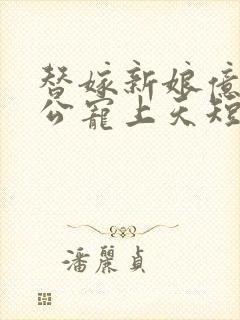 替嫁新娘億
公寵上天短
潘麗貞